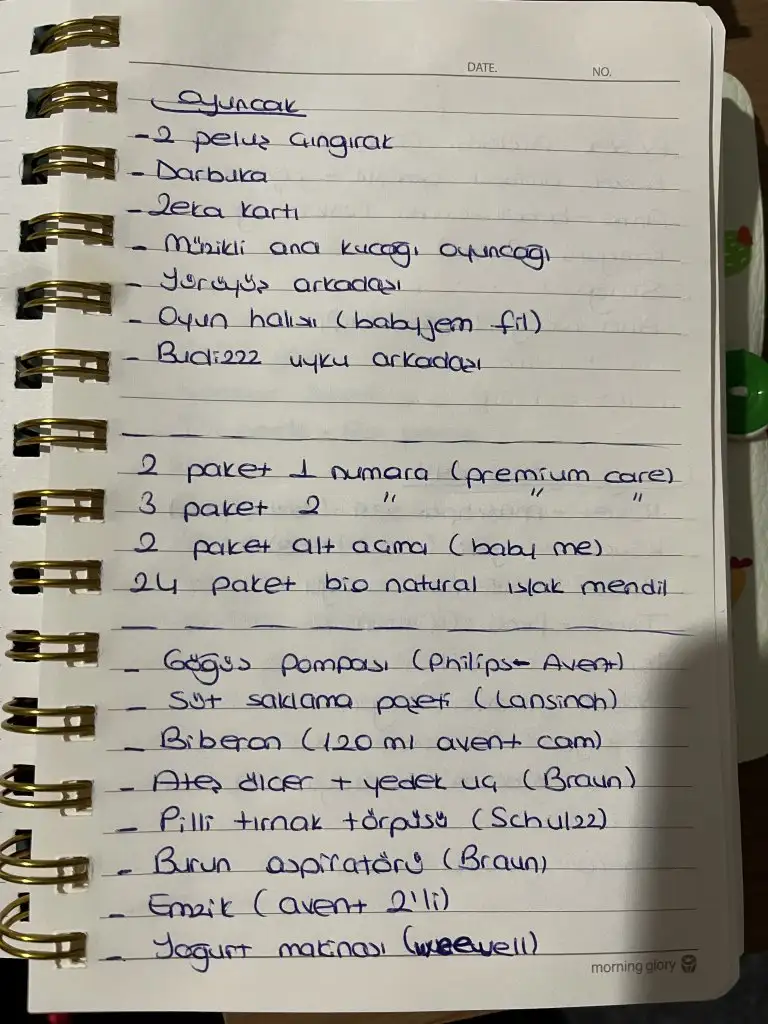 DATE. NO.
oyuncak
-2 peluş çıngırak
- Darbuka
- Zeka kartı
- Müzikli ana kucağı oyuncağı
- Yürüyüş arkadaşı
- Oyun halısı (babyjem fil)
- Budizzz uyku arkadaşı
2 paket 1 numara (premium care)
3 paket 2 " " "
2 paket alt açma (baby me)
24 paket bio natural ıslak mendil
- Göğüs pompası (Philips- Avent)
- Süt saklama poşeti (Lansinoh)
- Biberon (120 ml avent cam)
- Ateş ölçer + yedek uç (Braun)
- Pilli tırnak törpüsü (Schulzz)
- Burun aspiratörü (Braun)
- Emzik (avent 2'li)
- Yogurt makinası (weewell)
morning glory